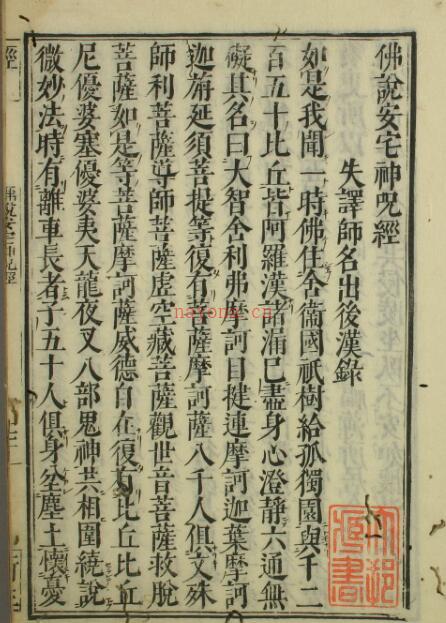 佛說安宅神呪經
失譯師名出後漢錄
如是我聞一時佛住舍衞國祇樹給孤獨園與千二
百五十比丘皆阿羅漢諸漏已盡身心澄静六通無
礙其名曰大智舍利弗摩訶目揵連摩訶迦葉摩訶
迦旃延須菩提等復有菩薩摩訶薩八千人俱文殊
師利菩薩導師菩薩虛空藏菩薩觀世音菩薩救脫
菩薩如是等菩薩摩訶薩威德自在復有比丘比丘
尼優婆塞優婆夷天龍夜叉八部鬼神共相圍繞說
微妙法時有離車長者子五十人俱身坌塵土懷憂
經
佛說安宅神呪經
nayona.cn